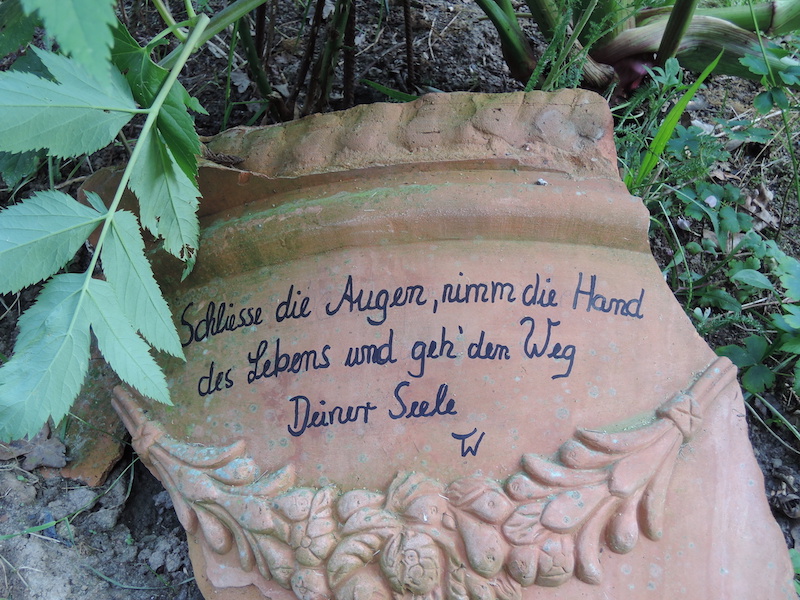 Schliesse die Augen, nimm die Hand
des Lebens und geh' den Weg
Deiner Seele
TW